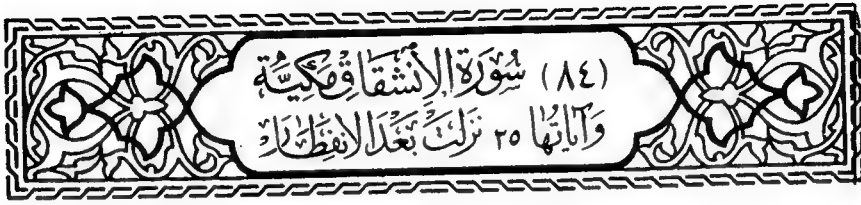 (٨٤) سُورَةُ الِانْشِقَاقِ مَكِّيَّة
وَآيَاتُهَا ٢٥ نَزَلَتْ بَعْدَ الِانْفِطَارِ